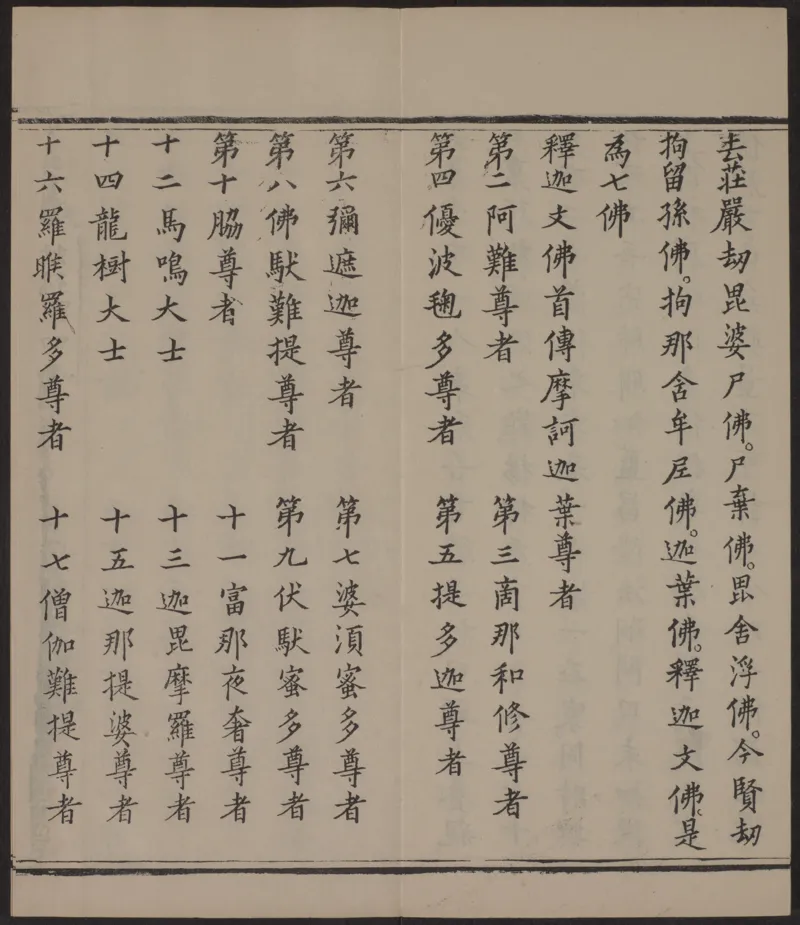 去莊嚴劫毘婆尸佛。尸棄佛。毘舍浮佛。今賢劫
拘留孫佛。拘那舍牟尼佛。迦葉佛。釋迦文佛。是
為七佛
釋迦文佛首傳摩訶迦葉尊者
第二阿難尊者 第三商那和修尊者
第四優波毱多尊者 第五提多迦尊者
第六彌遮迦尊者 第七婆須蜜多尊者
第八佛馱難提尊者 第九伏馱蜜多尊者
第十脇尊者 十一富那夜奢尊者
十二馬鳴大士 十三迦毘摩羅尊者
十四龍樹大士 十五迦那提婆尊者
十六羅睺羅多尊者 十七僧伽難提尊者